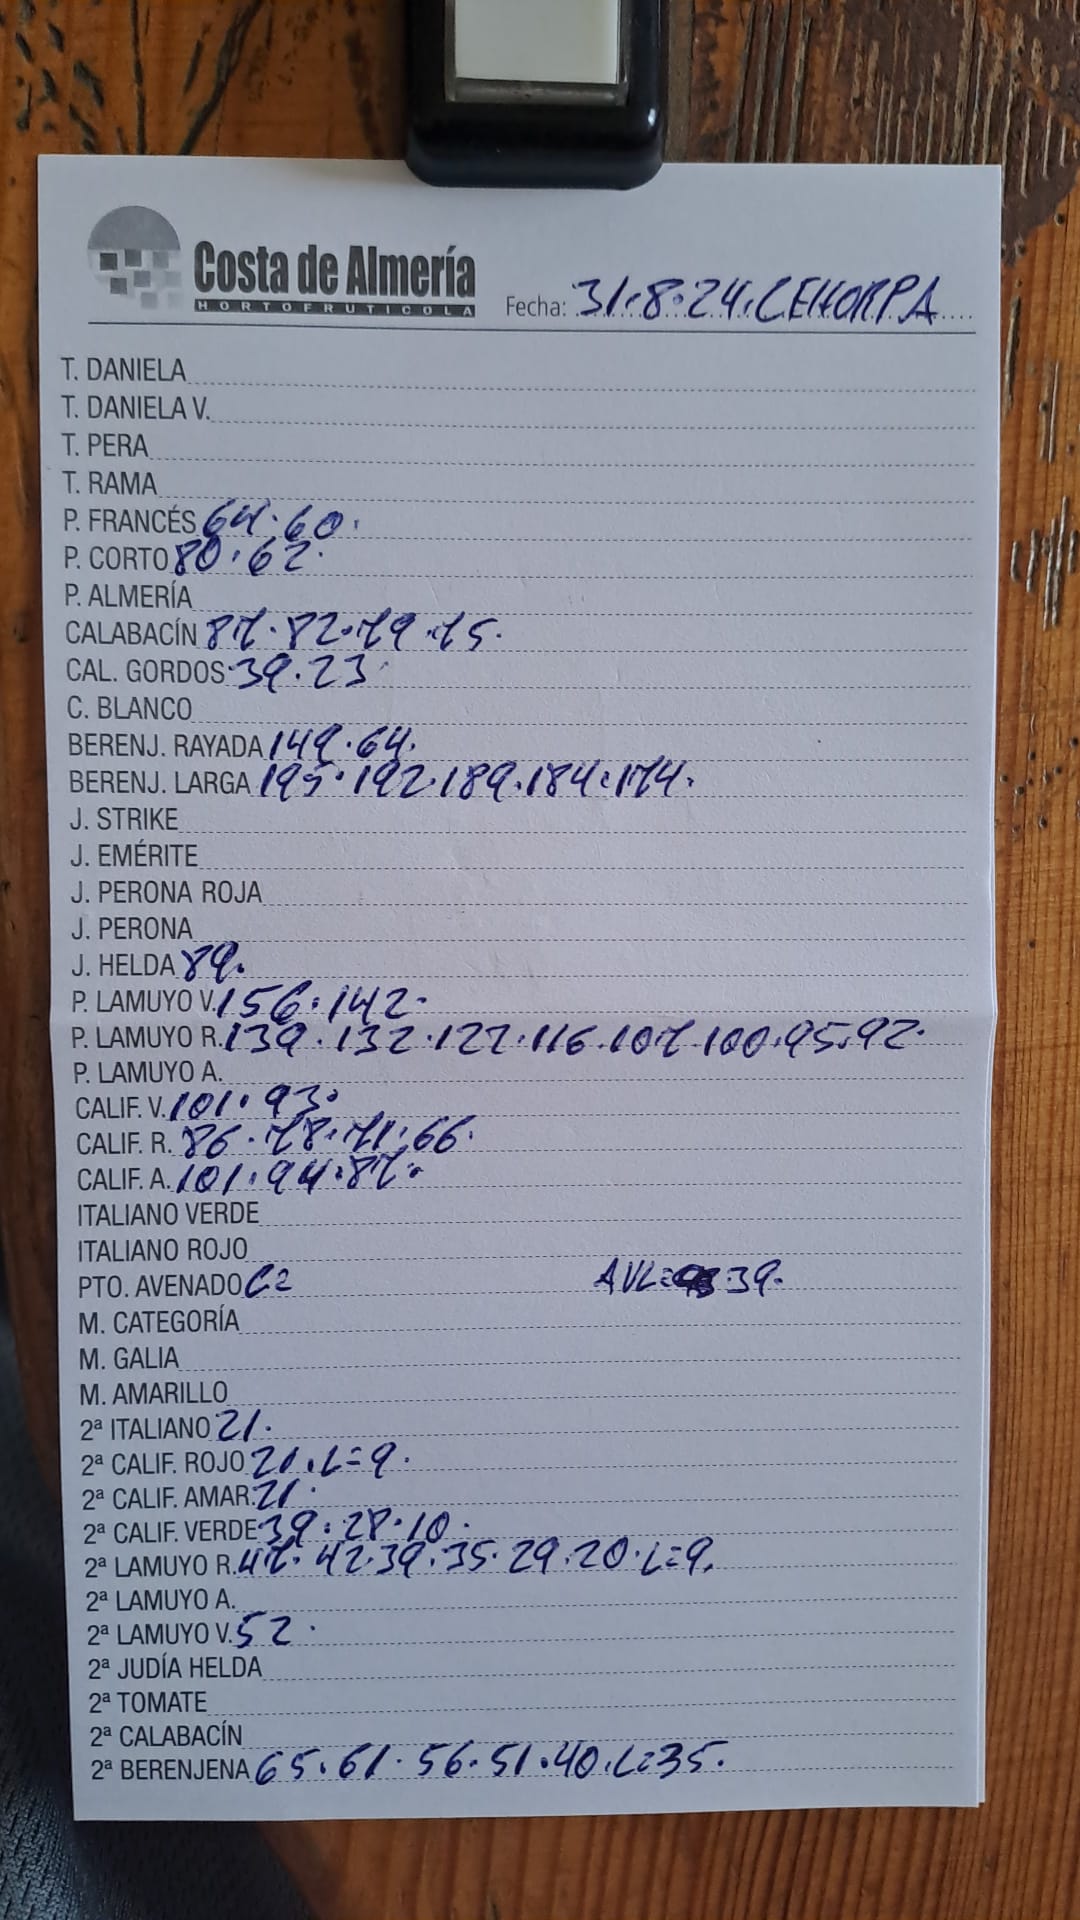 Costa de Almería
HORTOFRUTICOLA
Fecha: 31.8.24. CEHORPA
T. DANIELA
T. DANIELA V.
T. PERA
T. RAMA
P. FRANCÉS 64.60.
P. CORTO 80.62.
P. ALMERÍA
CALABACÍN 87.82.79.75.
CAL. GORDOS 39.23
C. BLANCO
BERENJ. RAYADA 149.64.
BERENJ. LARGA 195.192.189.184.174.
J. STRIKE
J. EMÉRITE
J. PERONA ROJA
J. PERONA
J. HELDA 89.
P. LAMUYO V. 156.142.
P. LAMUYO R. 139.132.122.116.107.100.95.92.
P. LAMUYO A.
CALIF. V. 101.93.
CALIF. R. 86.78.71.66.
CALIF. A. 101.94.87.
ITALIANO VERDE
ITALIANO ROJO
PTO. AVENADO C2 AVL= 39.
M. CATEGORÍA
M. GALIA
M. AMARILLO
2ª ITALIANO 21.
2ª CALIF. ROJO 21.L=9.
2ª CALIF. AMAR. 21.
2ª CALIF. VERDE 39.28.10.
2ª LAMUYO R. 47.42.39.35.29.20.L=9.
2ª LAMUYO A.
2ª LAMUYO V. 52.
2ª JUDÍA HELDA
2ª TOMATE
2ª CALABACÍN
2ª BERENJENA 65.61.56.51.40.L=35.